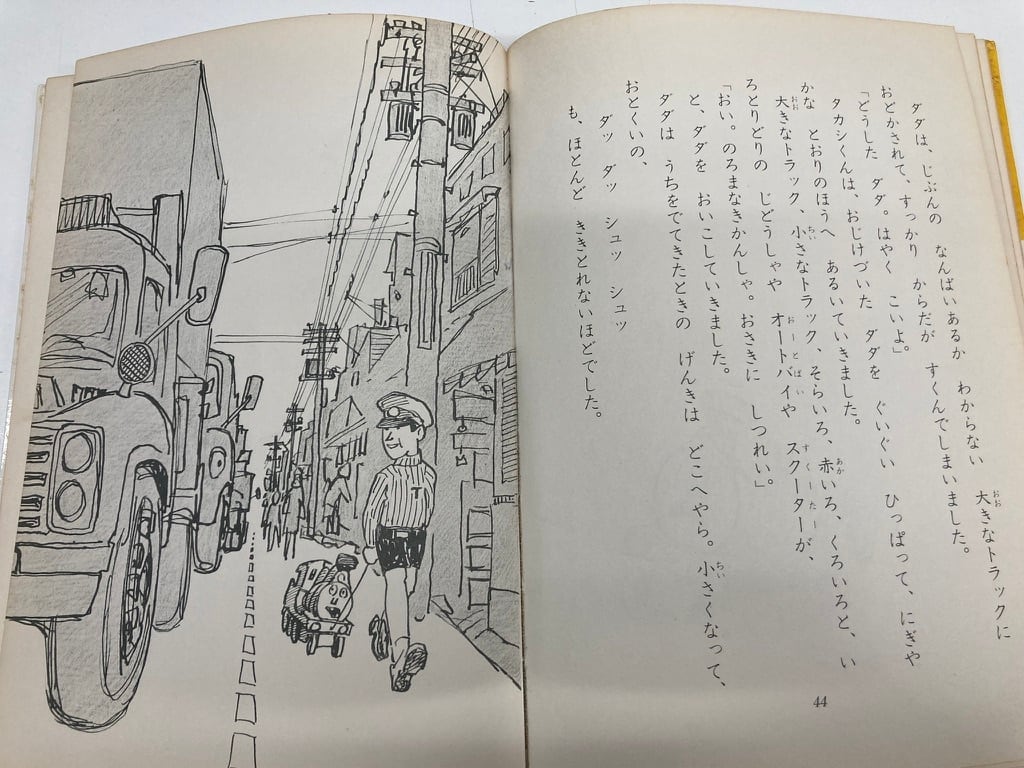 ダダは、じぶんの なんばいあるか わからない 大きなトラックに
おどかされて、すっかり からだが すくんでしまいました。
「どうした ダダ。はやく こいよ。」
タカシくんは、おじけづいた ダダを ぐいぐい ひっぱって、にぎや
かな とおりのほうへ あるいていきました。
大きなトラック、小さなトラック、そらいろ、赤いろ、くろいろと、い
ろとりどりの じどうしゃや オートバイや スクーターが、
「おい。のろまなきかんしゃ。おさきに しつれい」。
と、ダダを おいこしていきました。
ダダは うちをでてきたときの げんきは どこへやら。小さくなって、
おとくいの、
ダッ ダッ シュッ シュッ
も、ほとんど ききとれないほどでした。
44
T